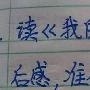 . 读《我的
后感,准